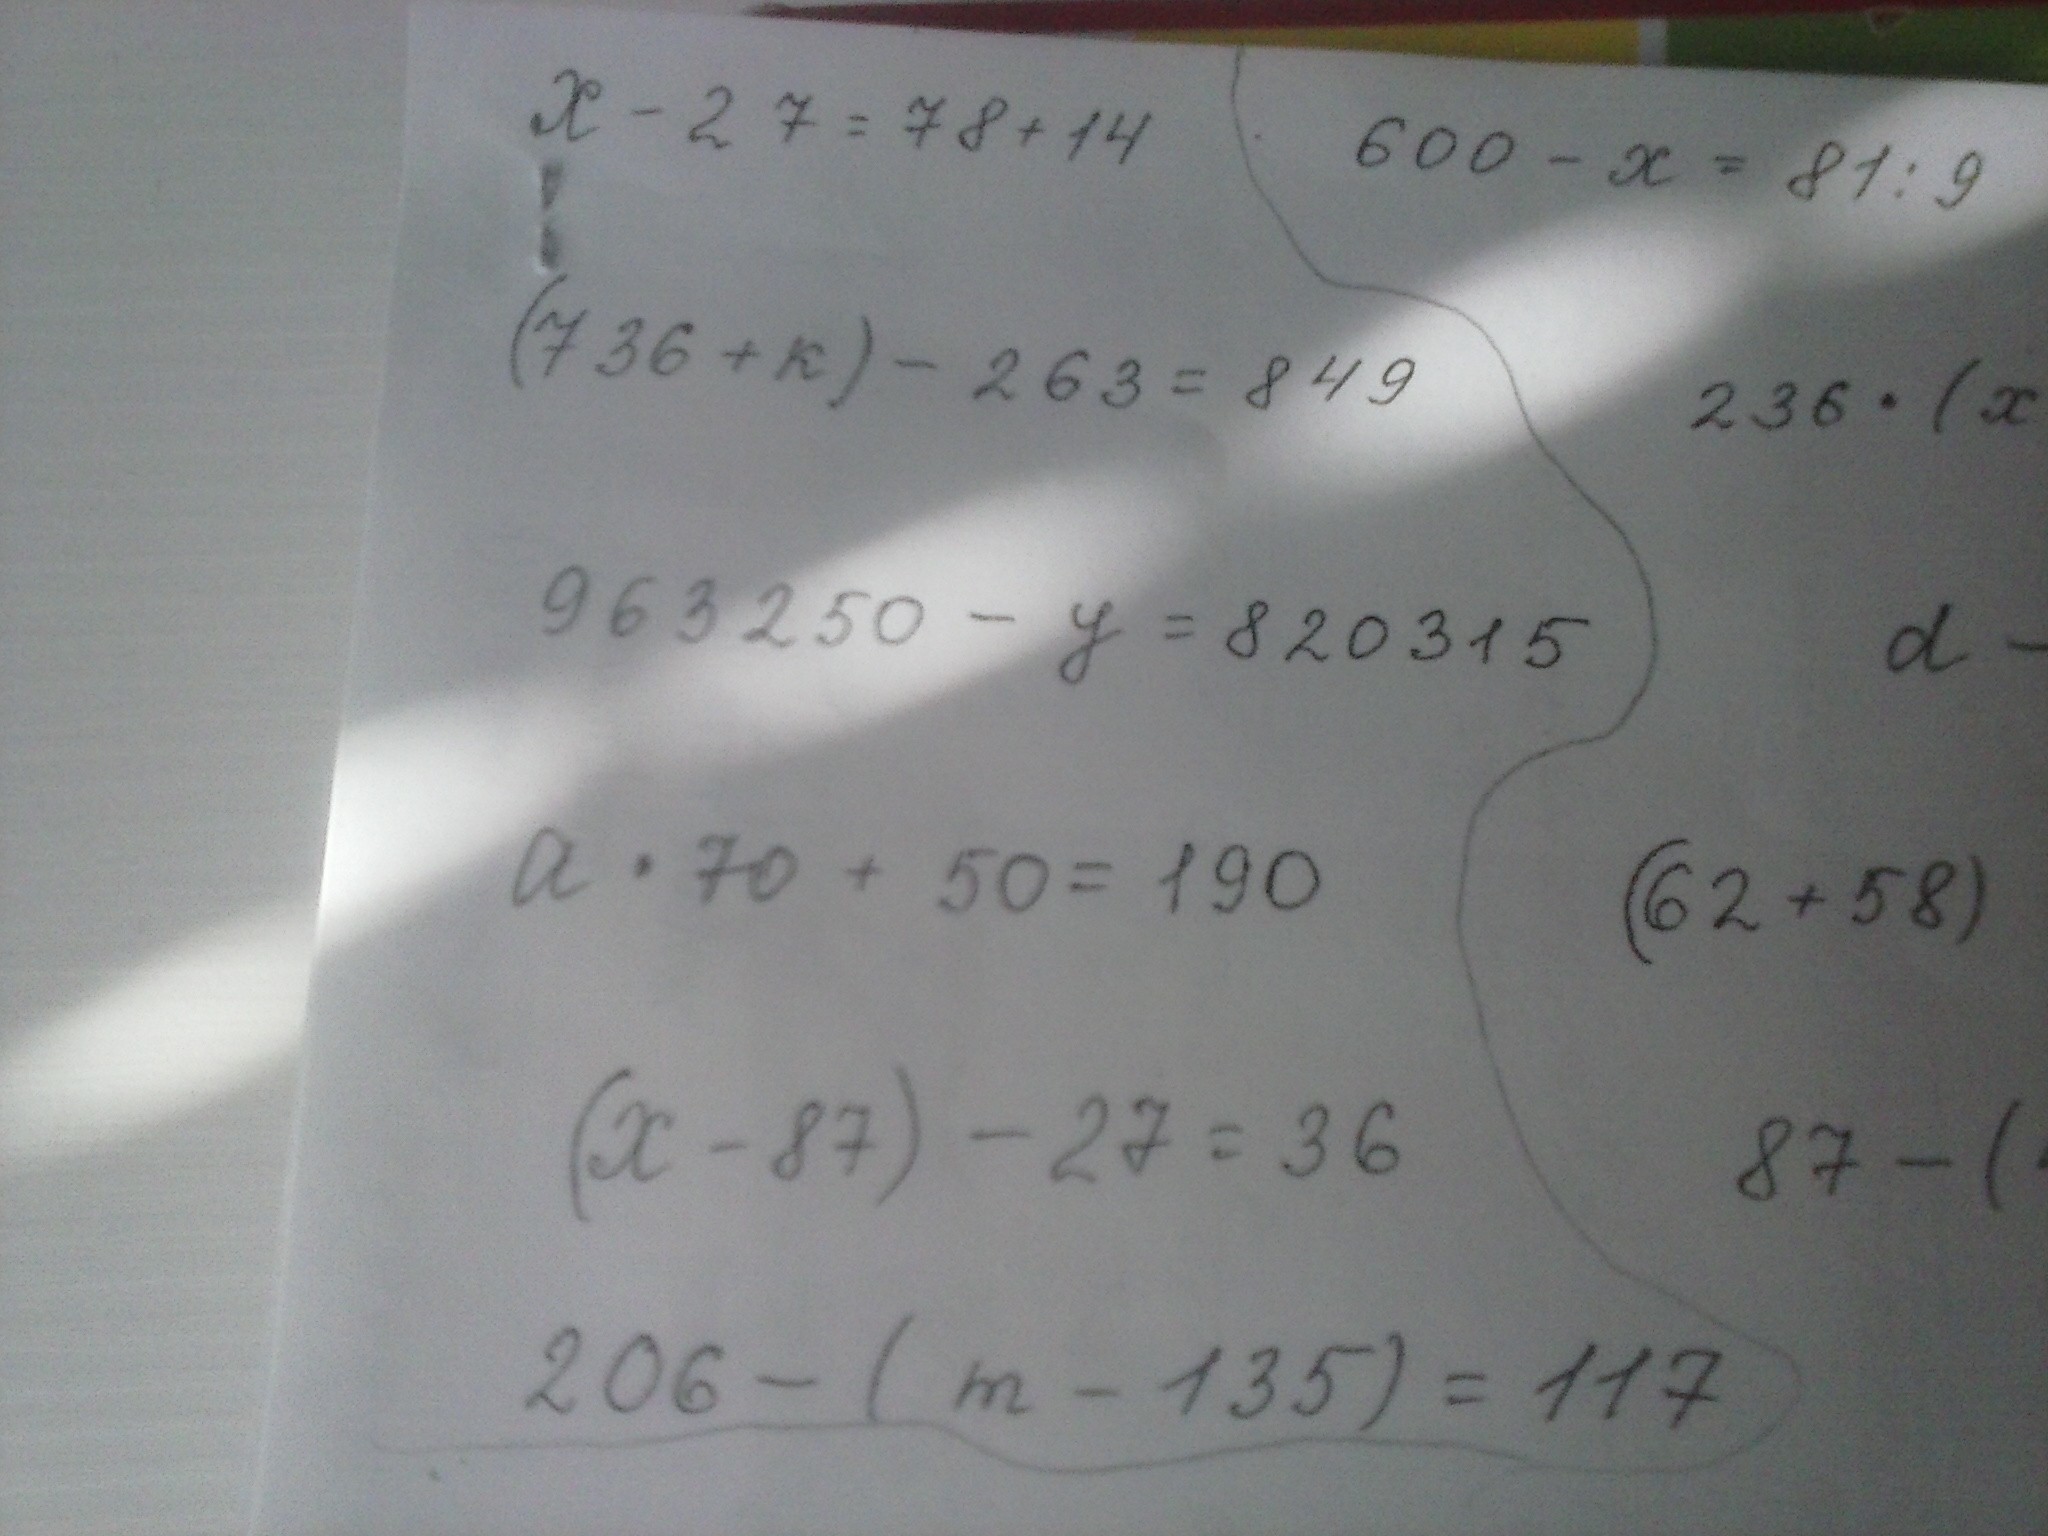 x - 27 = 78 + 14
(736 + к) - 263 = 849
963250 - y = 820315
a · 70 + 50 = 190
(x - 87) - 27 = 36
206 - (m - 135) = 117
600 - x = 81 : 9
236 · (x
d -
(62 + 58)
87 - (